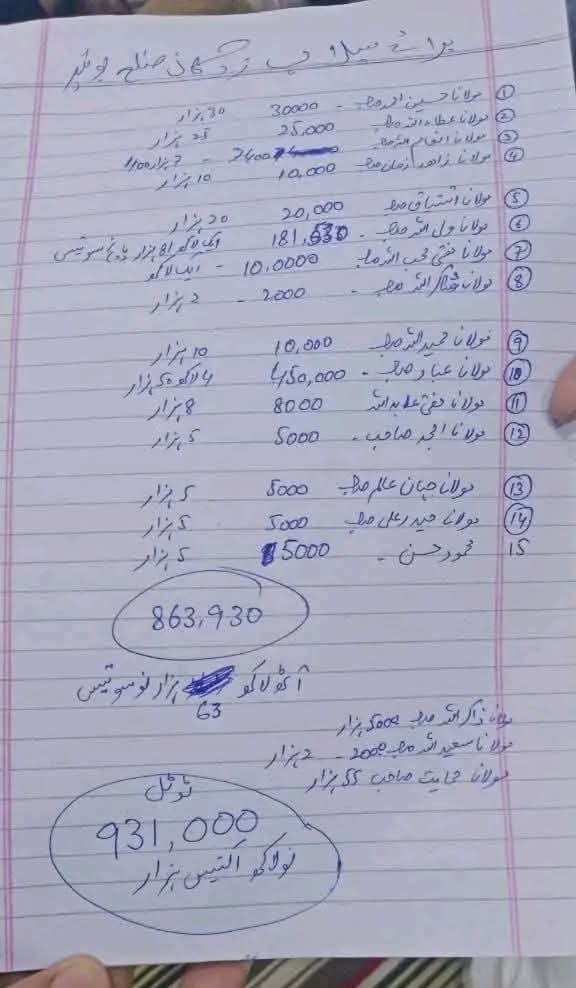 برائے سیلاب زدگان ضلع بونیر
① مولانا حسین احمد صاحب - 30000 30 ہزار
② مولانا عطاء اللہ صاحب 25,000 25 ہزار
③ مولانا انعام اللہ صاحب 7400 - 7 ہزار 400
④ مولانا زاھد زمان صاحب 10,000 10 ہزار
⑤ مولانا اشتیاق صاحب 20,000 20 ہزار
⑥ مولانا ولی اللہ صاحب - 181,530 ایک لاکھ 81 ہزار پانچ سو تیس
⑦ مولانا مفتی محب اللہ صاحب 10,0000 - ایک لاکھ
⑧ مولانا شاکر اللہ صاحب - 2000 - 2 ہزار
⑨ مولانا حمید اللہ صاحب 10,000 10 ہزار
⑩ مولانا عباد صاحب - 450,000 4 لاکھ 50 ہزار
⑪ مولانا مفتی عابد اللہ 8000 8 ہزار
⑫ مولانا امجد صاحب - 5000 5 ہزار
⑬ مولانا جہان عالم صاحب 5000 5 ہزار
⑭ مولانا حیدر علی صاحب 5000 5 ہزار
15 محمود حسن - 5000 5 ہزار
863,930
آٹھ لاکھ 63 ہزار نو سو تیس
مولانا ذاکر اللہ صاحب 5000 ہزار
مولانا سعید اللہ صاحب 2000 - 2 ہزار
مولانا حمایت صاحب 55 ہزار
ٹوٹل
931,000
نو لاکھ اکتیس ہزار